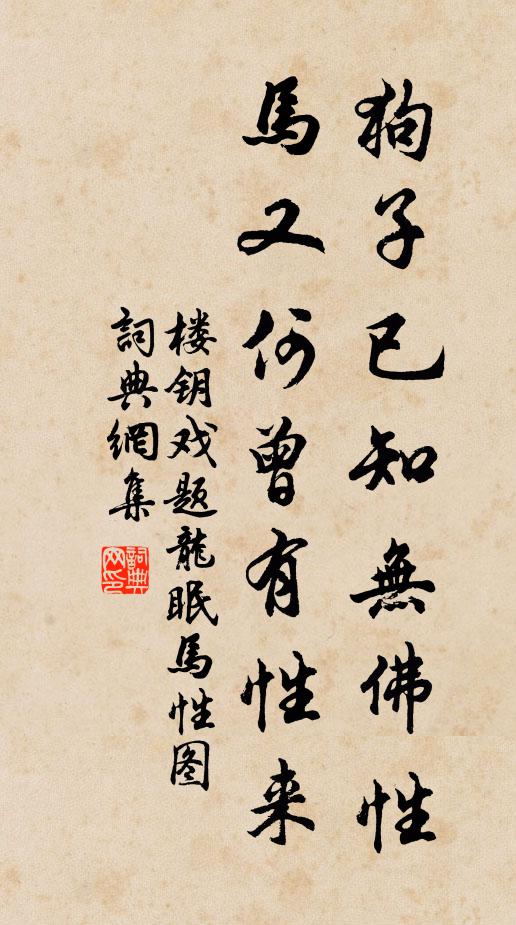 狗子已知無佛性
馬又何曾有性来
楼钥戏题龍眠馬性图
詞典網集
詞典网印